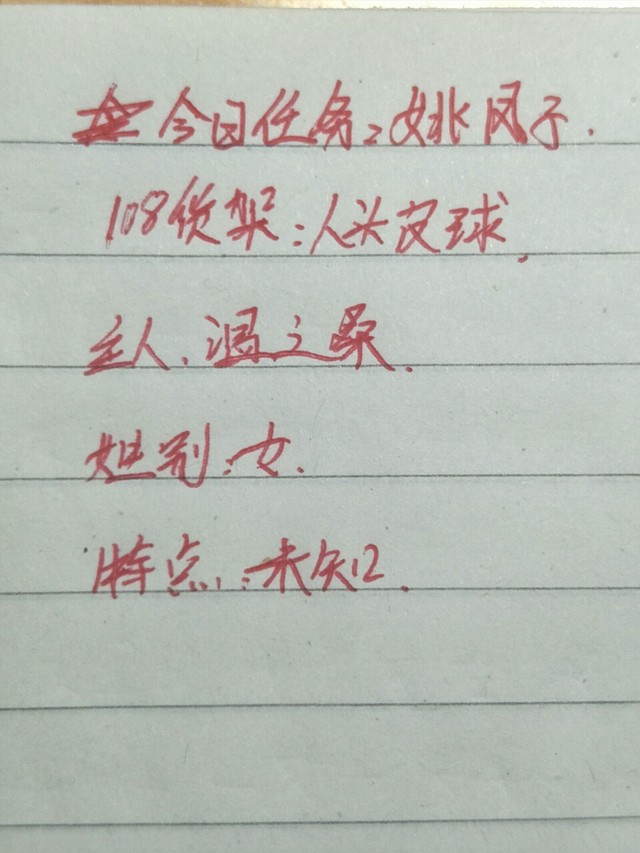 今日任务:姚凤子.
108货架:人头皮球.
主人.温之桑.
姓别:女.
特点:未知.